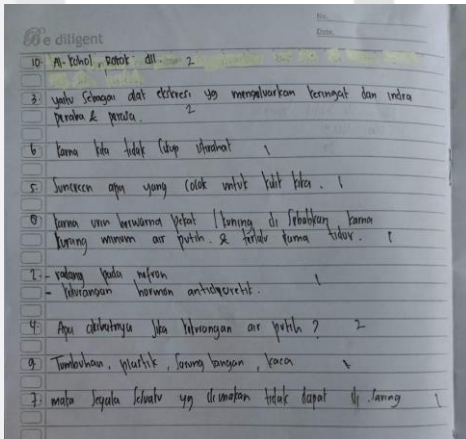 No.
Date.
Be diligent
10. Al-kohol, Rokok dll. 2
3. yaitu Sebagai alat ekskresi yg mengeluarkan keringat dan indra
peraba & perasa. 2
6 karna kita tidak Cukup istirahat 1
5. Sunscreen apa yang Cocok untuk kulit kita. 1
8 karna urin berwarna pekat / kuning di sebabkan karna
kurang minum air putih. & terlalu lama tidur. 1
- radang pada nefron
- kekurangan hormon antidiuretik. 1
4. Apa akibatnya Jika kekurangan air putih ? 2
9. Tumbuhan, plastik, Sarung tangan, kaca
7. maka Segala Seluatu yg di makan tidak dapat di Saring 1